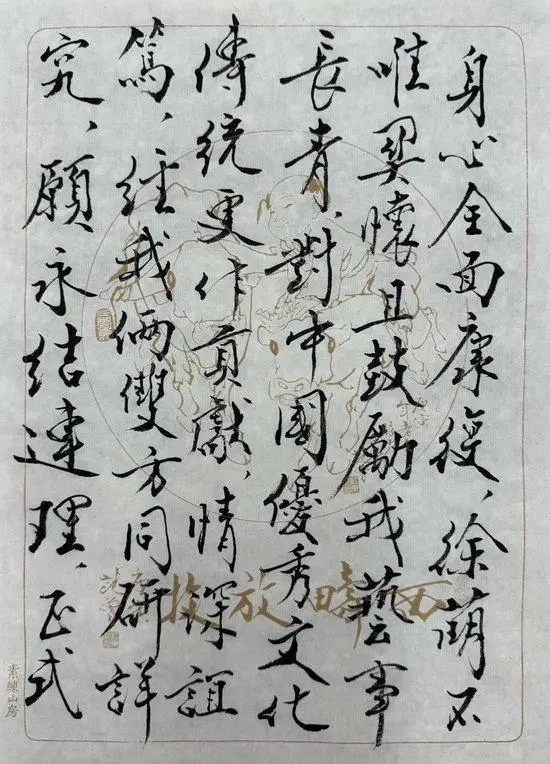 身心全面康復、徐萌不
唯契懷且鼓勵我藝事
長青、對中國優秀文化
傳統更作貢獻、情深誼
篤、經我倆雙方同研詳
究、願永結連理、正式
西疇放牧
素練山房